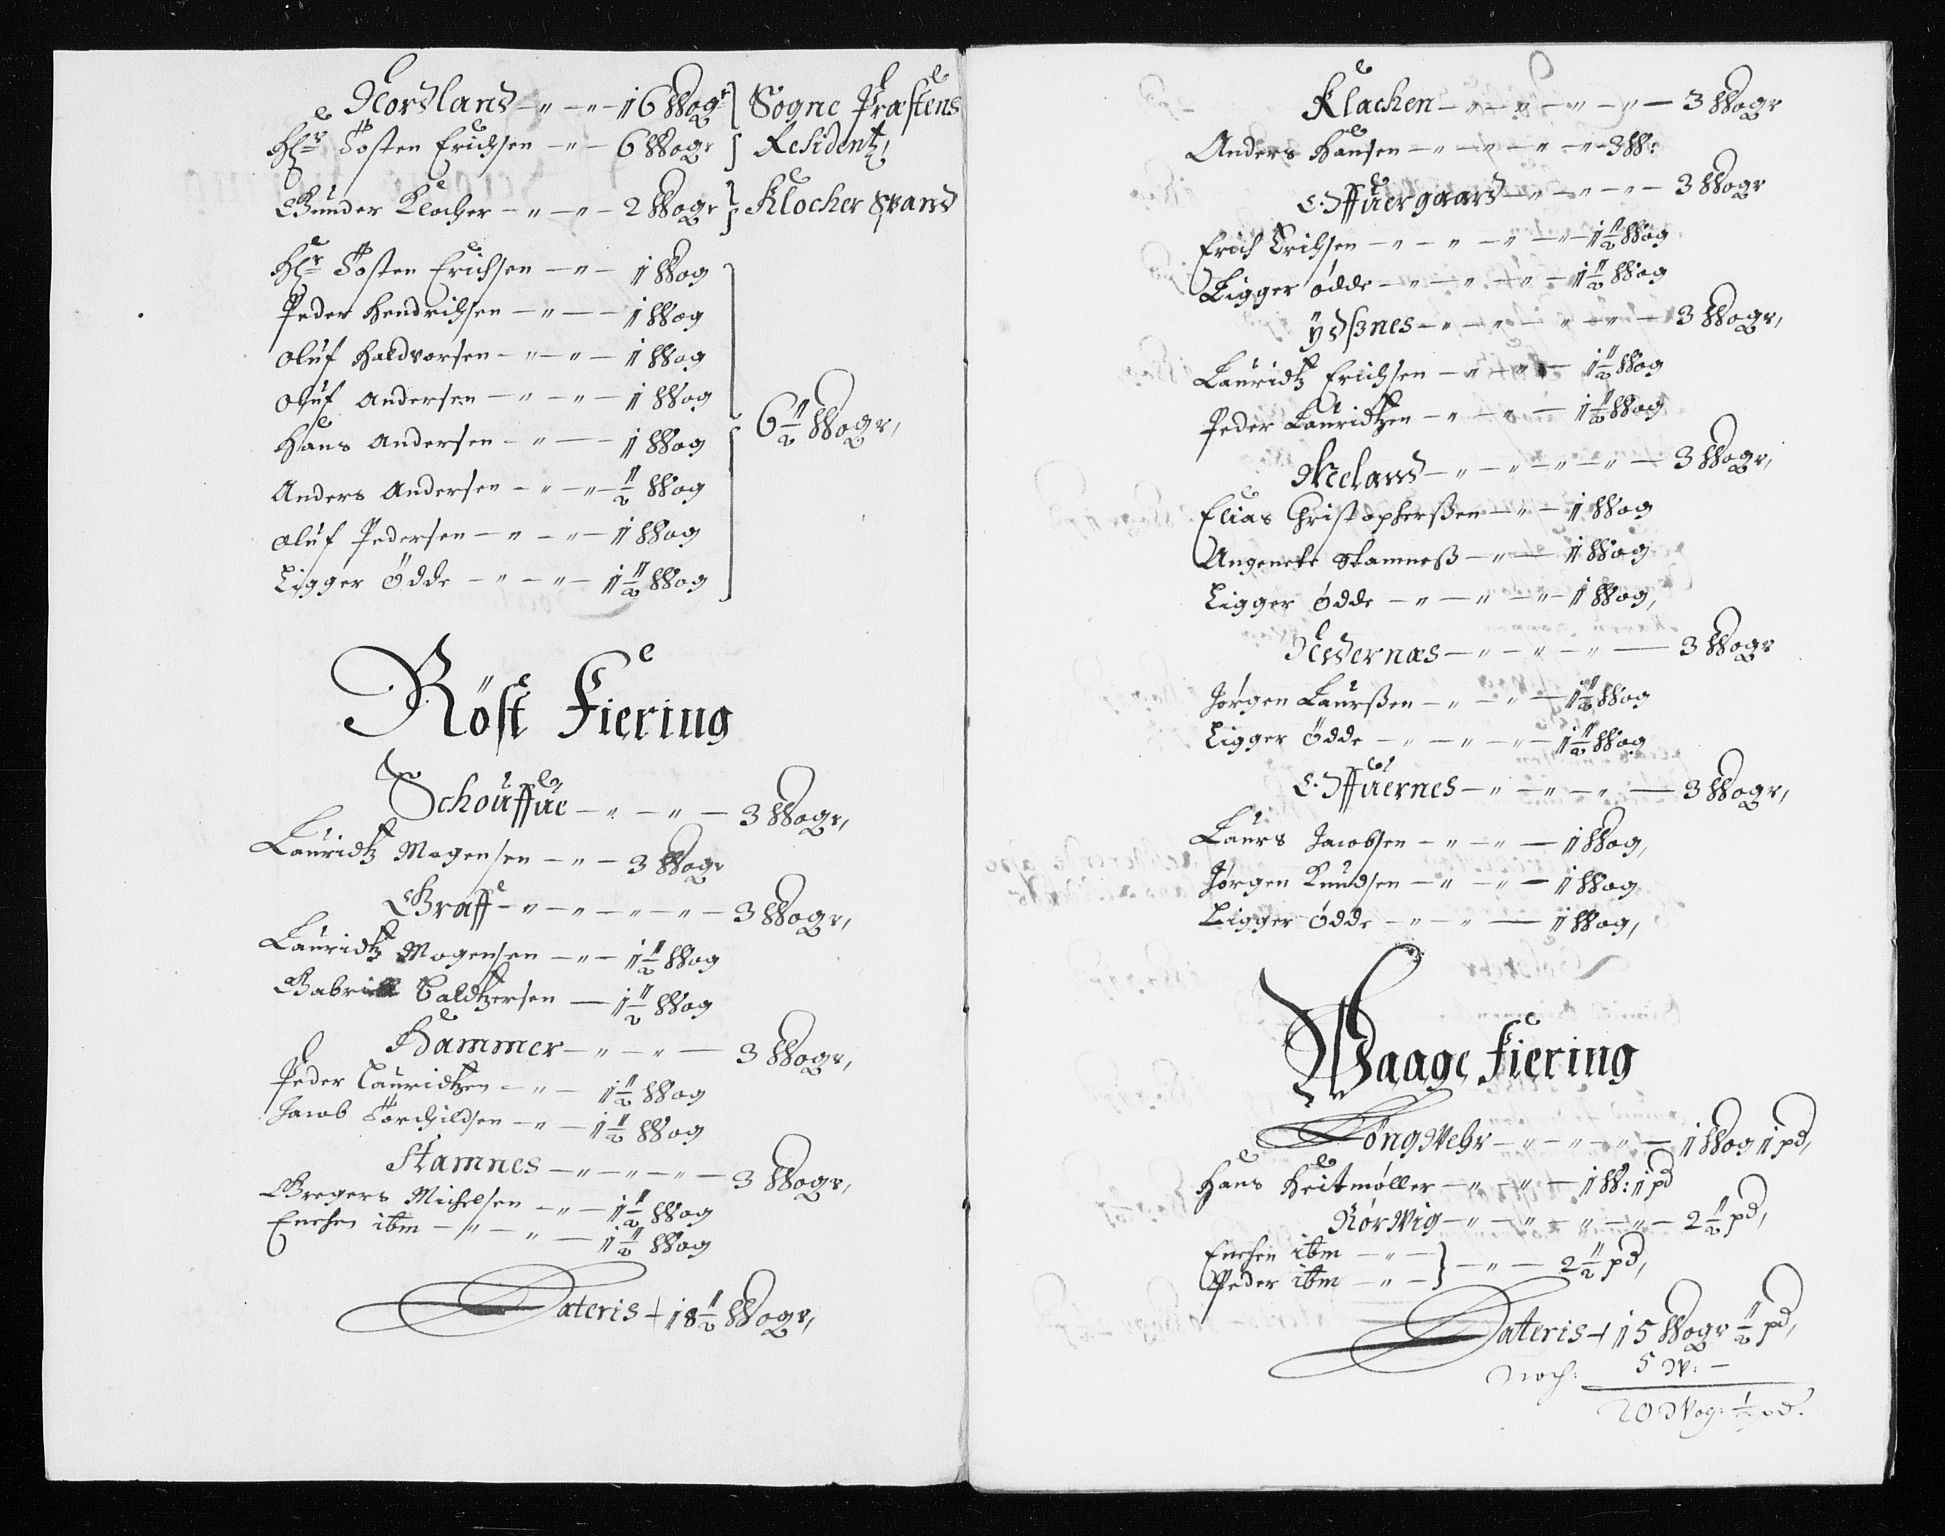 Nordland - " - " - 16 Wogr } Sogne Præstens
Hr Tosten Erichsen - " - 6 Wogr } Residentz,
Gunder Klocher - " - " - 2 Wogr } Klocher Stand
Hr Tosten Erichsen - " - 1 Wog
Peder Hendrichsen - " - 1 Wog
Oluf Haldvorsen - " - " - 1 Wog
Oluf Andersen - " - " - 1 Wog
Hans Andersen - " - 1 Wog
6 1/2 Wogr,
Anders Andersen - " - " - 1/2 Wog
Oluf Pedersen - " - " - 1 Wog
Ligger Ödde - " - " - 1 1/2 Wog
Röst Fiering
Schouffue - " - " - 3 Wogr,
Lauridtz Mogensen - " - 3 Wogr
Graff - " - " - " - " - 3 Wogr,
Lauridtz Mogensen - " - 1 1/2 Wog
Gabriell Baldtzersen - 1 1/2 Wog
Hammer - " - " - 3 Wogr,
Peder Lauridtzen - " - 1 1/2 Wog
Jacob Torchildsen - " - 1 1/2 Wog
Stamnes - " - " - " - 3 Wogr,
Gregers Michelsen - " - 1 1/2 Wog
Enchen ibm - " - " - 1 1/2 Wog
Lateris + 18 1/2 Wogr,
Klachen - " - " - " - " - 3 Wogr
Anders Hansen - " - " - " - " - 3 W:
Offuergaard - " - " - " - 3 Wogr
Erich Erichsen - " - " - " - " - 1 1/2 Wog
Ligger ødde - " - " - " - 1 1/2 Wog
ydßnes - " - " - " - " - 3 Wogr,
Lauridtz Erichsen - " - " - 1 1/2 Wog
Peder Lauridtzen - " - " - 1 1/2 Wog
Meland - " - " - " - " - 3 Wogr,
Elias Christopherßen - " - 1 Wog
Angenete Stamneß - " - 1 Wog
Ligger ødde - " - " - " - 1 Wog,
Nedernæs - " - " - " - 3 Wogr
Jørgen Laurßen - " - " - 1 1/2 Wog
Ligger Ödde - " - " - " - 1 1/2 Wog
Offuernes - " - " - " - 3 Wogr,
Laurs Jacobsen - " - " - 1 Wog,
Jørgen Knudsen - " - " - 1 Wog
Ligger ødde - " - " - 1 Wog,
Waage Fiering
Longwehr - " - " - " - 1 Wog 1 pd,
Hans Heitmøller - " - " - 1 W: 1 pd
Rørwig - " - " - " - " - 2 1/2 pd,
Enchen ibm - " - } - " - 2 1/2 pd,
Peder ibm - " -
Lateris + 15 Wogr 1/2 pd,
Noch: 5 W: -
20 Wog: 1/2 pd.